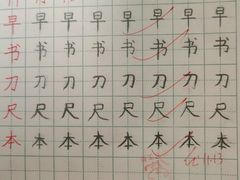 早 早 早 早 早 早 早 早
书 书 书 书 书 书 书 书
刀 刀 刀 刀 刀 刀 刀 刀
尺 尺 尺 尺 尺 尺 尺 尺
本 本 本 本 本 本 本 本